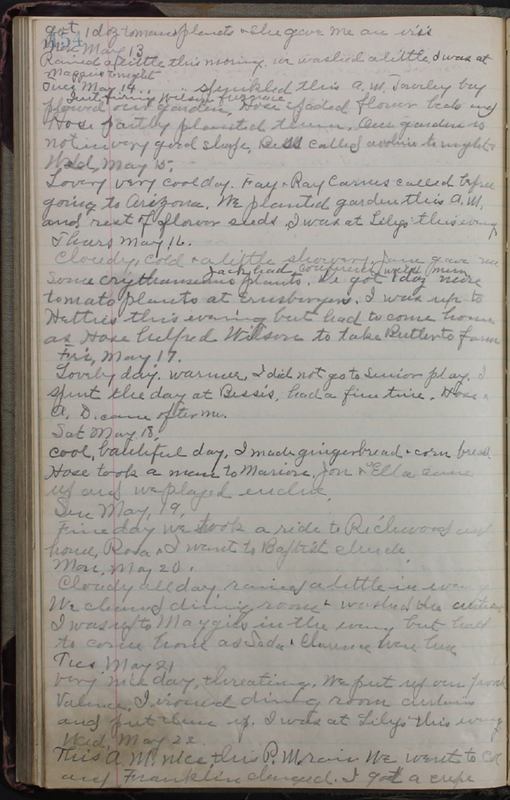 got 1 doz tomans plants & she gave me an
454
Mon. May 13
Rained a little this morning. we washed a little I was at
Maggies tonight
Tues May 14. sprinkled this A.M. Farley boy
plowed out garden, Hose spaded flower beds and
Hose partly planted them. Our garden is
not in very good shape, called to night
Wed, May 15,
Lovely very cool day. Fay & Ray Carnes called before
going to Arizona. We planted garden this A.M.
and rest of flower seeds. I was at Lilys this eveng
Thurs May 16.
Cloudy, cold & a little showery. Jane gave me
some plants. We got 1 doz more
tomato plants at Ernsbergers. I was up to
Hetties this evening but had to come home
as Hose helped Wilson to take Butler to farm
Fri, May 17.
Lovely day. warmer, I did not go to Senior play. I
spent the day at Bessis, had a fine time. Hose &
A. D. came after me.
Sat May 18,
cool, beautiful day, I made gingerbread & corn bread
Hose took a man to Marion, Jon & Ella came
up and we played euchre.
Sun May, 19,
Fine day we took a ride to Richwood and
home, Rosa & I went to Baptist church.
Mon, May 20.
Cloudy all day, rained a little in eveng
We cleaned dining room & washed the curtains
I was up to Maggies in the eveng but had
to come home as Sada & Clarence were here
Tues May 21
very nice day, threating. We put up our front
Valance, I ironed dining room curtains
and put them up. I was at Lilys this eveng
Wed, May 22
This A.M. nice, this P.M. rain We went to Col
and Franklin changed. I got a crepe